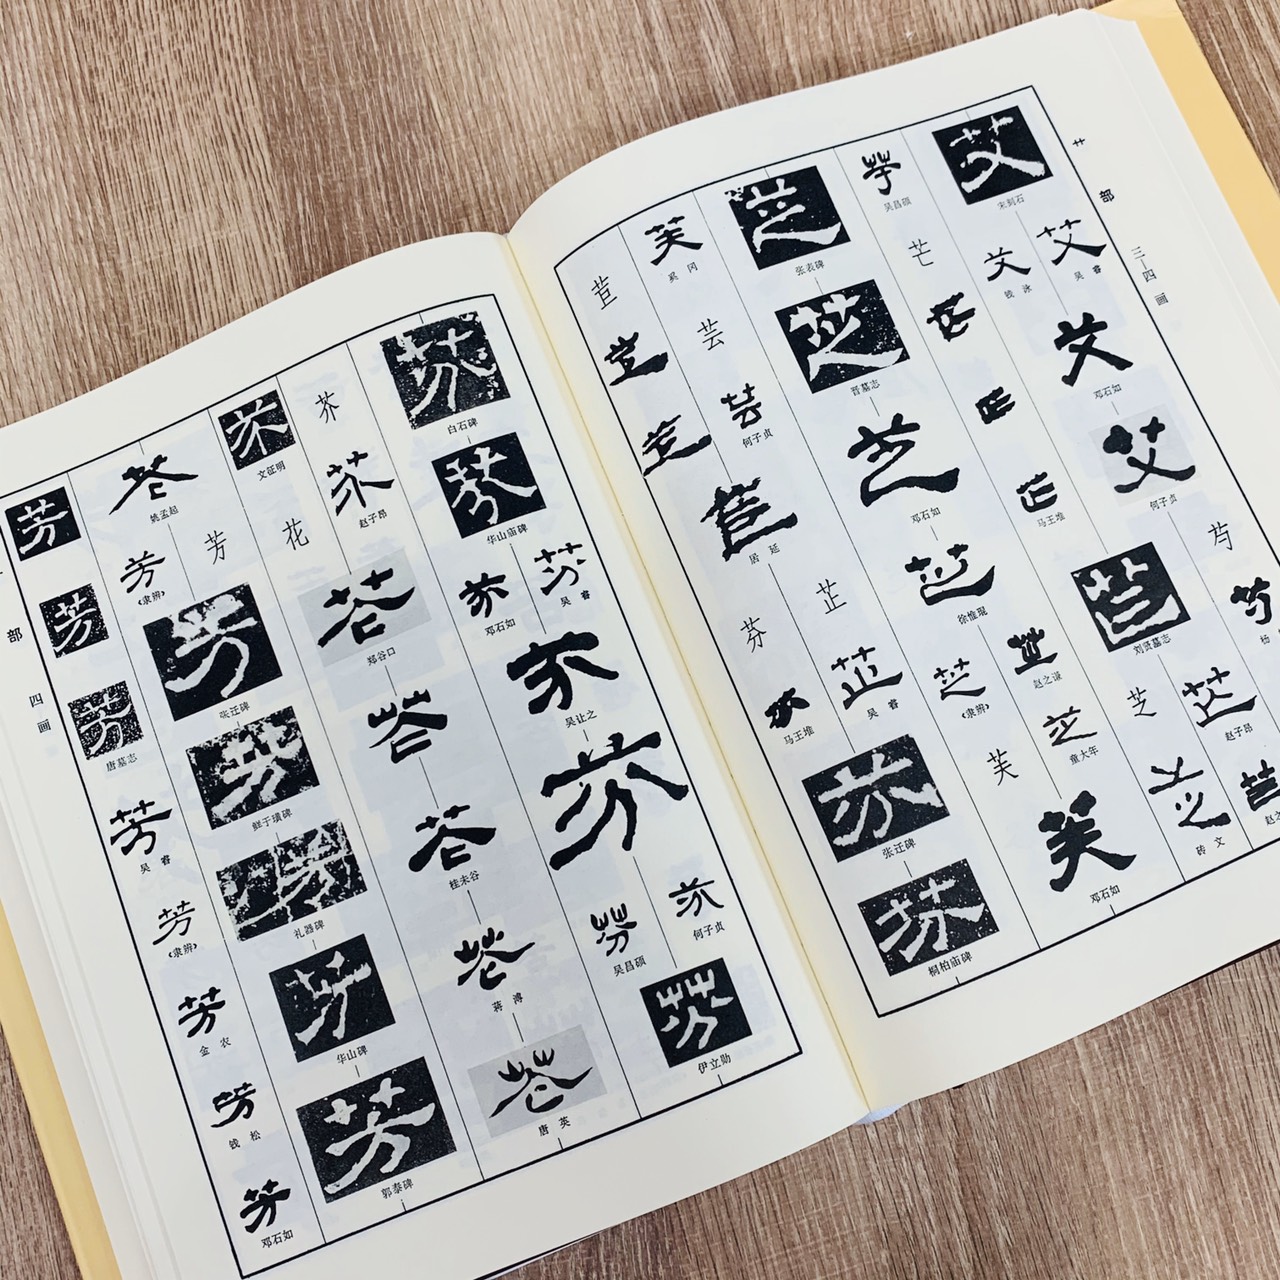 艹部 三—四画
艾
宋刻石
艾
吴睿
艾
钱泳
艾
邓石如
艾
何子贞
芍
芋
吴昌硕
芒
芒
芒
芒
马王堆
刘贤墓志
赵子昂
赵之谦
芝
砖文
芝
张表碑
芝
晋墓志
芝
邓石如
徐惟琨
芝
《隶辨》
芝
童大年
芙
芙
邓石如
芙
奚冈
芸
芸
何子贞
芷
芷
吴睿
苣
居延
芬
芬
马王堆
芬
张迁碑
芬
桐柏庙碑
芬
白石碑
芬
华山庙碑
芬
吴睿
芬
邓石如
芬
吴让之
芬
芬
何子贞
芬
吴昌硕
芬
伊立勋
芥
芥
赵子昂
芥
文征明
花
花
郑谷口
花
花
桂未谷
花
蒋溥
花
唐英
花
姚孟起
芳
芳
《隶辨》
芳
张迁碑
芳
鲜于璜碑
芳
礼器碑
芳
华山碑
芳
郭泰碑
芳
芳
芳
唐墓志
芳
吴睿
芳
《隶辨》
芳
金农
芳
钱松
芳
邓石如
部 四画